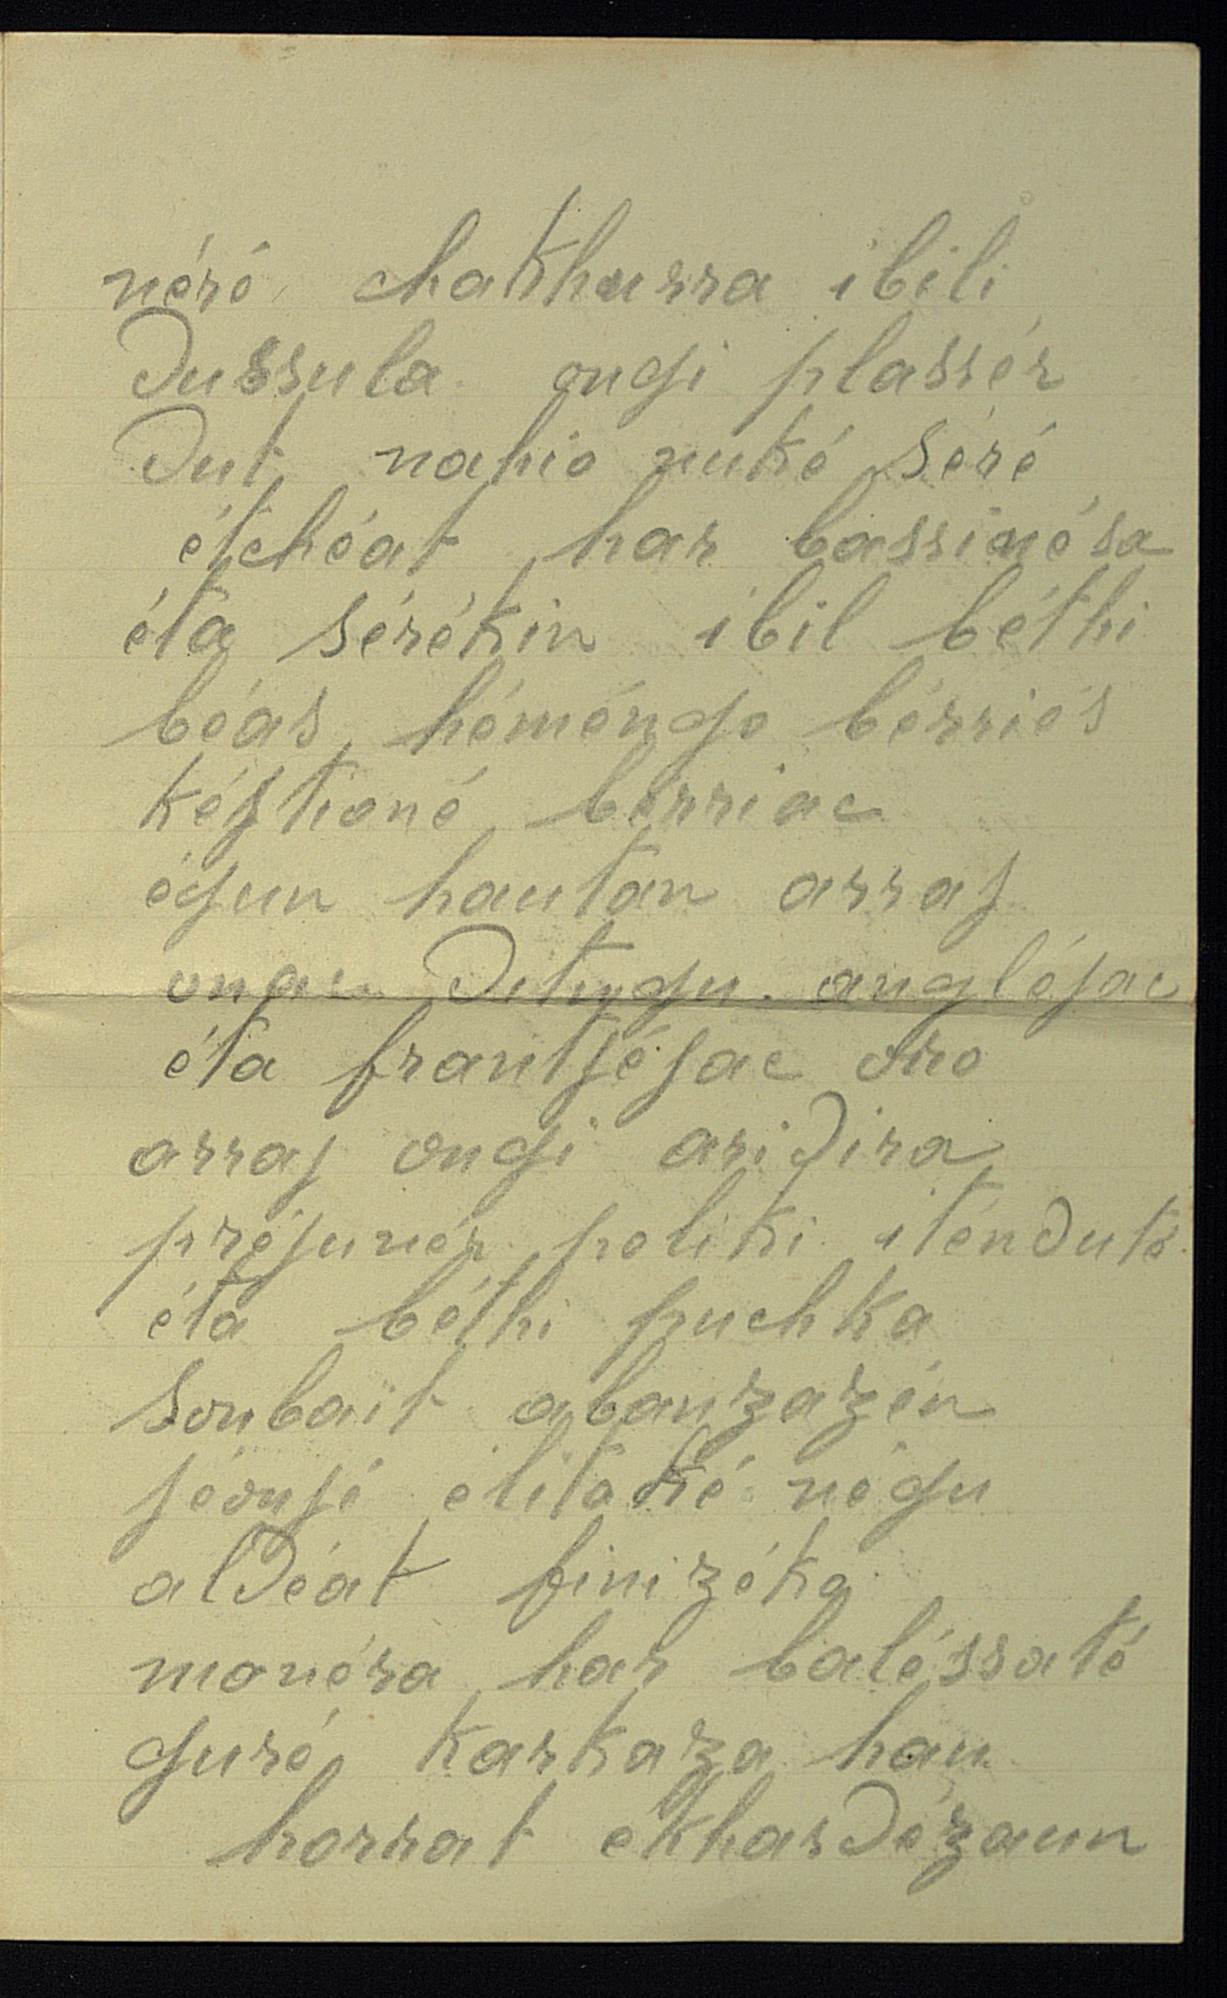 néré chakhurra ibili
Dussula ongi plassér
Dut nahio nuké séré
étchéat har bassinésa
éta sérékin ibil béthi
béas héméngo bérriés
késtioné bérriac
égun hautan arras
onac Ditugu. anglésac
éta frantsésac oro
arras ongi ari Dira
présunér poliki itén Duté
éta béthi puchka
Sonbaït abanzazén
élitaké négu
alDéat finizéko
monéra har baléssaté
guré karkaza hau
horrat ékhar Dézaun